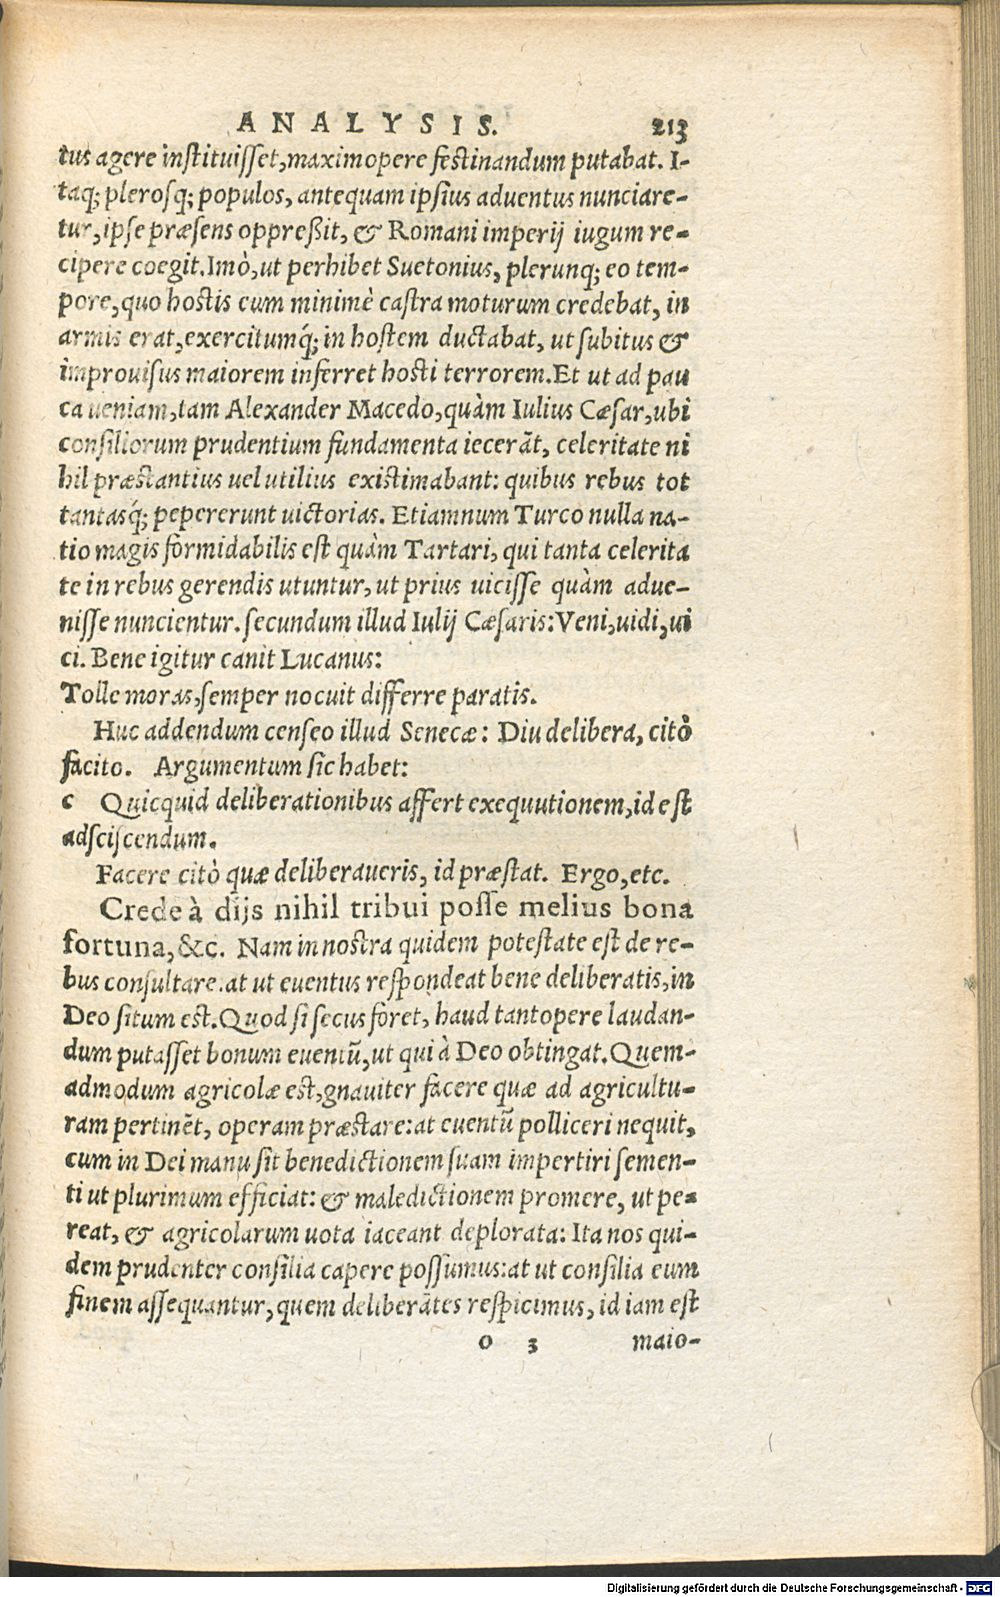 ANALYSIS. 213
tus agere instituisset, maximopere festinandum putabat. I-
taq; plerosq; populos, antequam ipsius aduentus nunciare-
tur, ipse præsens oppreßit, & Romani imperij iugum re-
cipere coegit. Imò, ut perhibet Suetonius, plerunq; eo tem-
pore, quo hostis eum minimè castra moturum credebat, in
armis erat, exercitumq́; in hostem ductabat, ut subitus &
improuisus maiorem inferret hosti terrorem. Et ut ad pau
ca ueniam, tam Alexander Macedo, quàm Iulius Cæsar, ubi
consiliorum prudentium fundamenta iecerãt, celeritate ni
hil præstantius uel utilius existimabant: quibus rebus tot
tantasq́; pepererunt uictorias. Etiamnum Turco nulla na-
tio magis formidabilis est quàm Tartari, qui tanta celerita
te in rebus gerendis utuntur, ut prius uicisse quàm adue-
nisse nuncientur. secundum illud Iulij Cæsaris: Veni, uidi, ui
ci. Bene igitur canit Lucanus:
Tolle moras, semper nocuit differre paratis.
Huc addendum censeo illud Senecæ: Diu delibera, citò
facito. Argumentum sic habet:
c Quicquid deliberationibus affert exequutionem, id est
adsciscendum.
Facere citò quæ deliberaueris, id præstat. Ergo, etc.
Crede à dijs nihil tribui posse melius bona
fortuna, &c. Nam in nostra quidem potestate est de re-
bus consultare. at ut euentus respondeat bene deliberatis, in
Deo situm est. Quod si secus foret, haud tantopere laudan-
dum putasset bonum euentũ, ut qui à Deo obtingat. Quem-
admodum agricolæ est, gnauiter facere quæ ad agricultu-
ram pertinẽt, operam præstare: at euentũ polliceri nequit,
cum in Dei manu sit benedictionem suam impertiri semen-
ti ut plurimum efficiat: & maledictionem promere, ut pe-
reat, & agricolarum uota iaceant deplorata: Ita nos qui-
dem prudenter consilia capere possumus: at ut consilia eum
finem assequantur, quem deliberãtes respicimus, id iam est
o 3 maio-
Digitalisierung gefördert durch die Deutsche Forschungsgemeinschaft - DFG